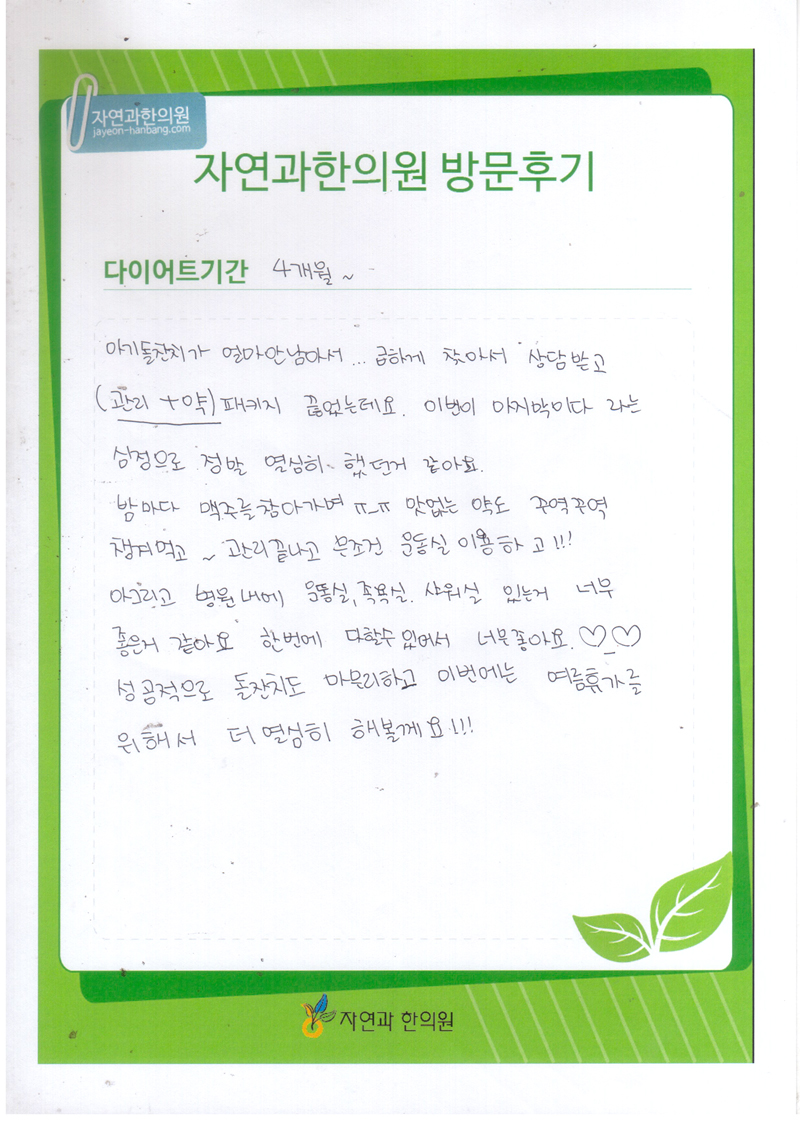 자연과한의원
jayeon-hanbang.com
자연과한의원 방문후기
다이어트기간 4개월~
아기돌잔치가 얼마안남아서... 급하게 찾아서 상담받고
(관리+약) 패키지 끊었는데요. 이번이 마지막이다 라는
심정으로 정말 열심히 했던거 같아요.
밤마다 맥주를참아가며 ㅠ_ㅠ 맛없는 약도 꾸역꾸역
챙겨먹고 ~ 관리끝나고 무조건 운동실이용하고!!!
아그리고 병원내에 운동실,족욕실.샤워실 있는거 너무
좋은거 같아요 한번에 다할수있어서 너무좋아요.♡_♡
성공적으로 돌잔치도 마무리하고 이번에는 여름휴가를
위해서 더 열심히 해볼께요!!!
자연과 한의원